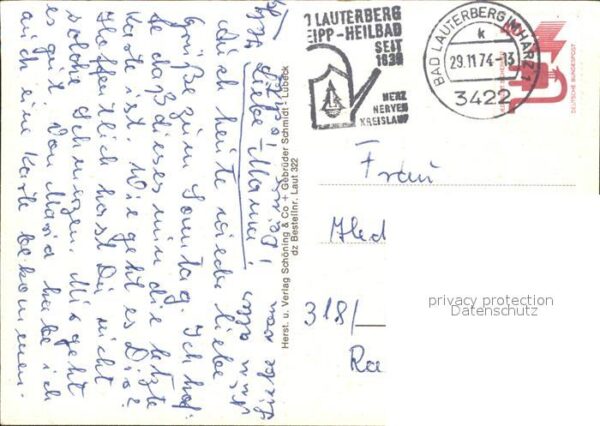 Liebe Mama!
Auch heute wieder liebe
Grüße zum Sonntag. Ich hof-
fe daß dieses nun die letzte
Karte ist. Wie geht es Dir?
Hoffentlich hast Du nicht
solche Schmerzen. Mir geht
es gut. Von Maria habe ich
auch eine Karte bekommen.
Herst. u. Verlag Schöning & Co + Gebrüder Schmidt - Lübeck
dz Bestellnr. Laut 322
D LAUTERBERG
EIPP-HEILBAD
SEIT
1839
HERZ
NERVEN
KREISLAUF
BAD LAUTERBERG IM HARZ 1
k
29.11.74-13
3422
DEUTSCHE BUNDESPOST
Frau
318/
Ra
privacy protection
Datenschutz